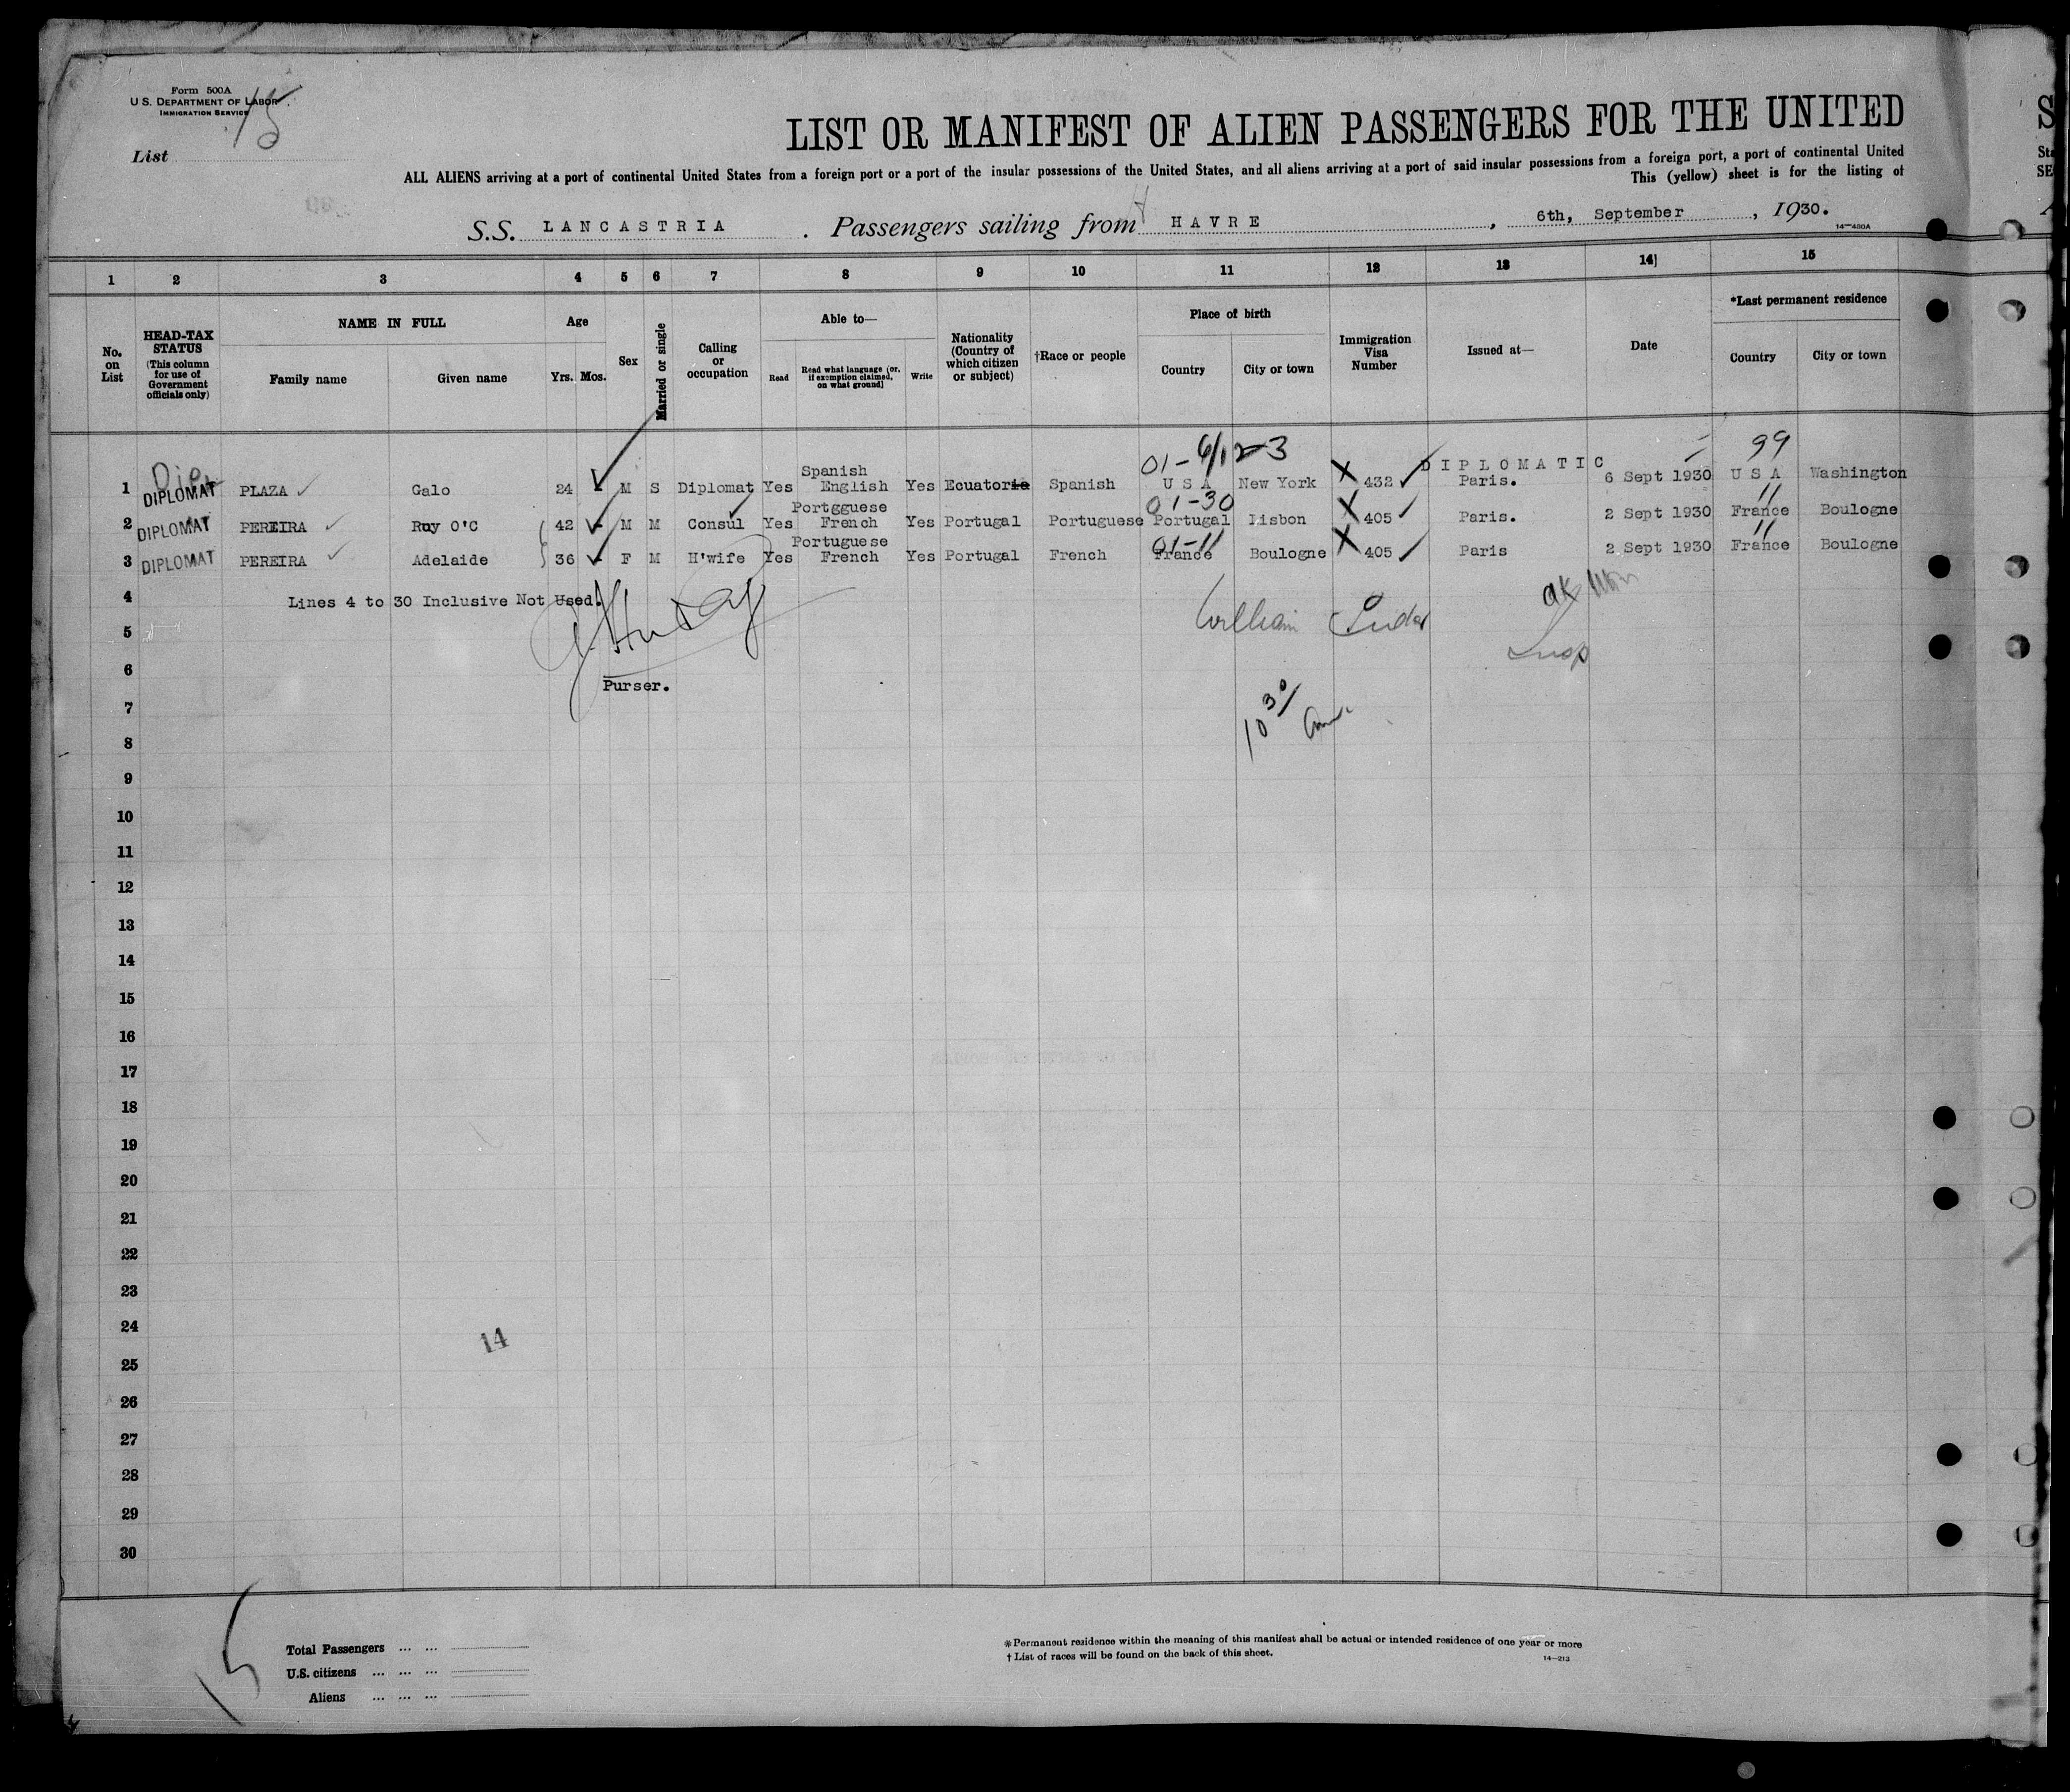 Form 500A
U. S. DEPARTMENT OF LABOR
IMMIGRATION SERVICE
15
List
LIST OR MANIFEST OF ALIEN PASSENGERS FOR THE UNITED
ALL ALIENS arriving at a port of continental United States from a foreign port or a port of the insular possessions of the United States, and all aliens arriving at a port of said insular possessions from a foreign port, a port of continental United
This (yellow) sheet is for the listing of
S.S. LANCASTRIA. Passengers sailing from HAVRE, 6th, September, 1930.
14—430A
1 2 3 4 5 6 7 8 9 10 11 12 13 14 15
No. on List
HEAD-TAX STATUS (This column for use of Government officials only)
NAME IN FULL
Family name Given name
Age
Yrs. Mos.
Sex
Married or single
Calling or occupation
Able to—
Read Read what language (or, if exemption claimed, on what ground) Write
Nationality (Country of which citizen or subject)
†Race or people
Place of birth
Country City or town
Immigration Visa Number
Issued at—
Date
*Last permanent residence
Country City or town
01-6/123 99
Dip
1 DIPLOMAT PLAZA Galo 24 - M S Diplomat Yes Spanish English Yes Ecuatoria Spanish U S A New York X 432 DIPLOMATIC Paris. 6 Sept 1930 U S A Washington
01-30 11
2 DIPLOMAT PEREIRA Ruy O'C 42 - M M Consul Yes Portgguese French Yes Portugal Portuguese Portugal Lisbon X 405 Paris. 2 Sept 1930 France Boulogne
01-11 11
3 DIPLOMAT PEREIRA Adelaide 36 - F M H'wife Yes Portuguese French Yes Portugal French France Boulogne X 405 Paris 2 Sept 1930 France Boulogne
4 Lines 4 to 30 Inclusive Not Used.
5 William
Insp
6
Purser.
7 10 30
8
9
10
11
12
13
14
15
16
17
18
19
20
21
22
23
24
14
25
26
27
28
29
30
15
Total Passengers ... ...
U.S. citizens ... ... ...
Aliens ... ... ...
*Permanent residence within the meaning of this manifest shall be actual or intended residence of one year or more
† List of races will be found on the back of this sheet.
14—213